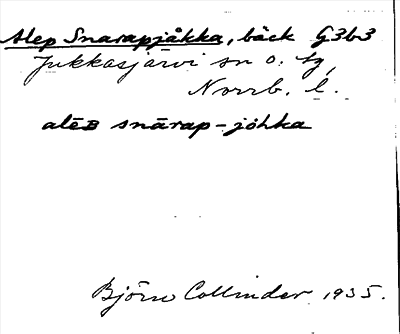 Alep Snarapjåkka, bäck G3b3
Jukkasjärvi sn o. tg,
Norrb. l.
alēʙ snārap-jåhka
Björn Collinder 1935.